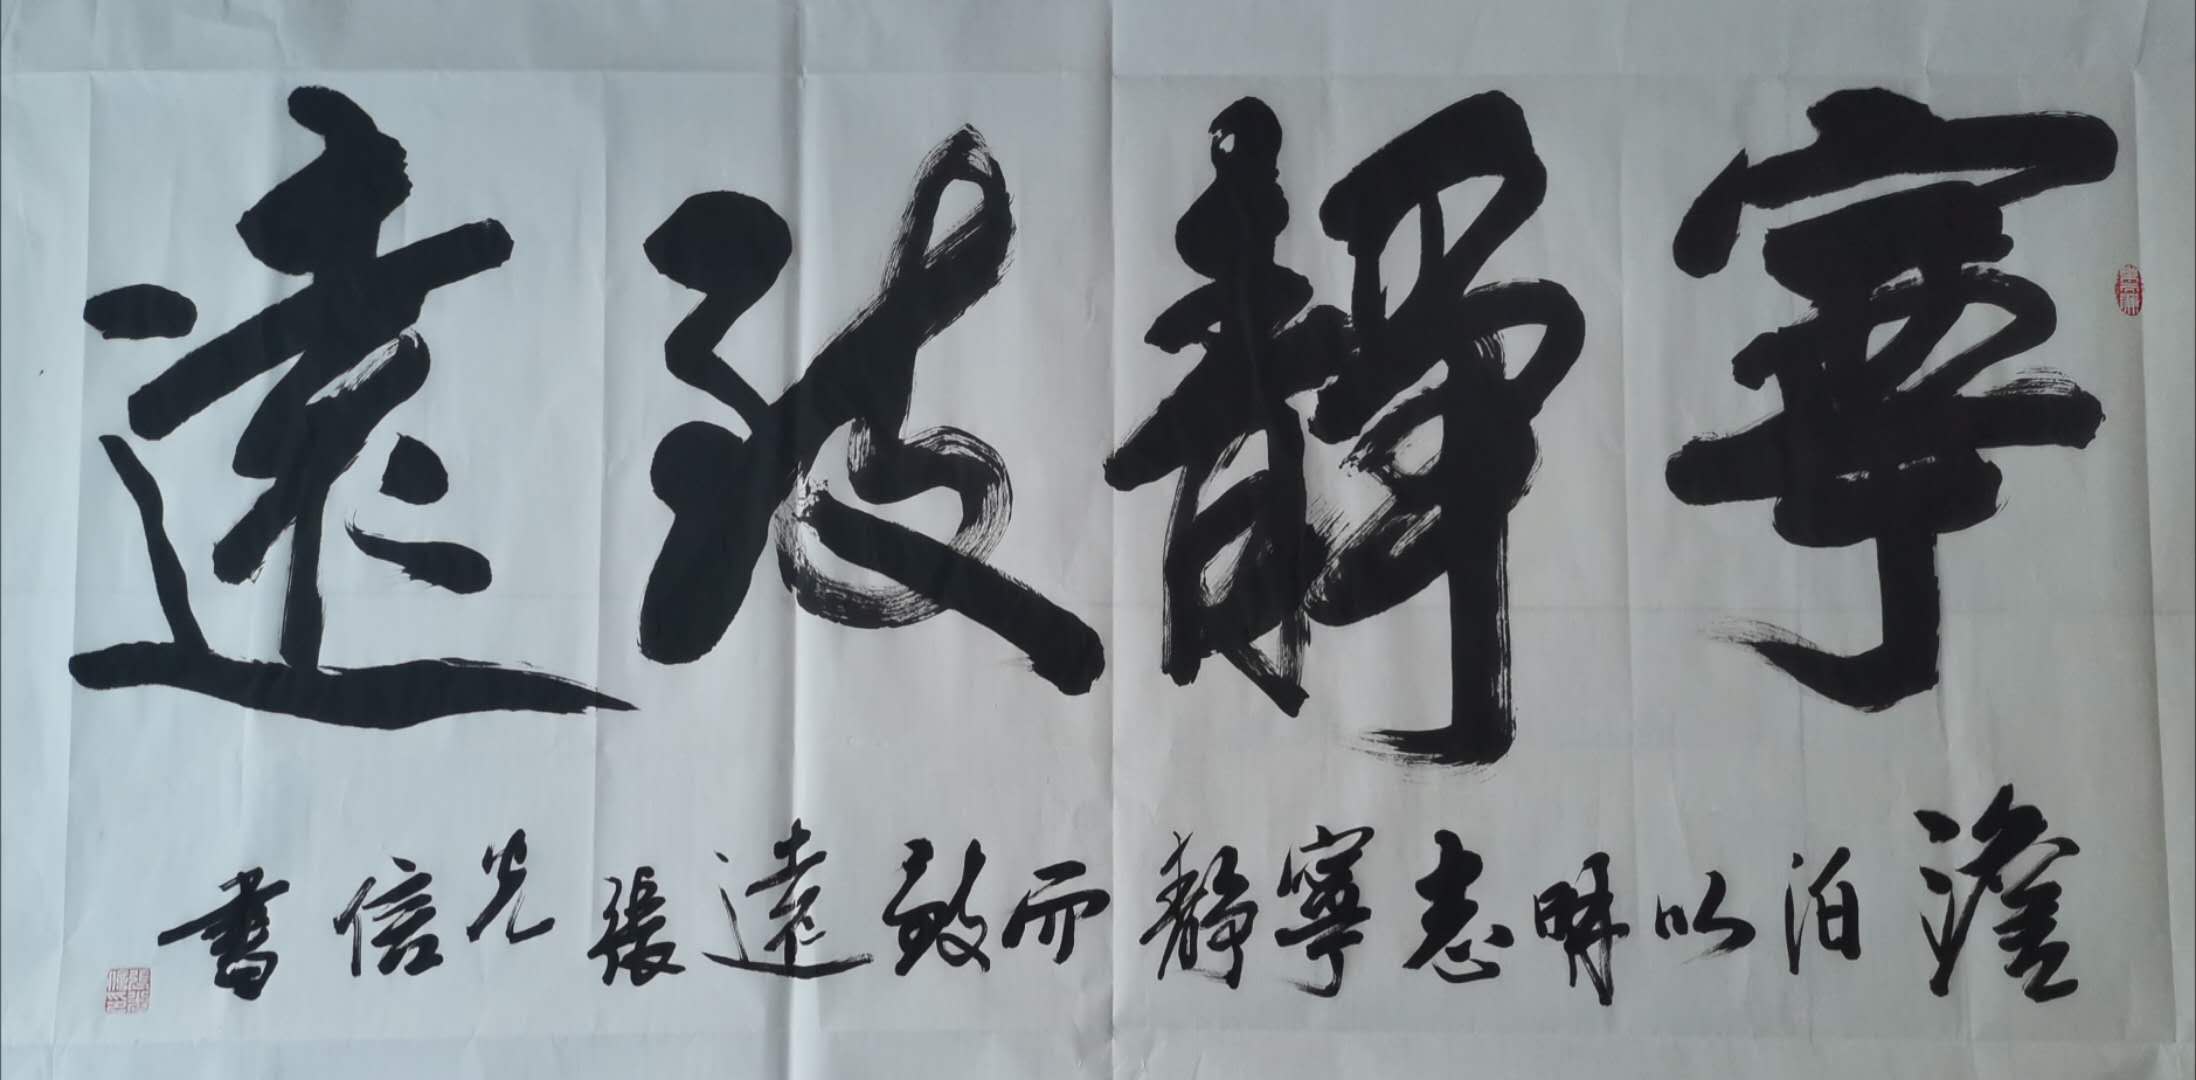 寧靜致遠
澹泊以明志寧靜而致遠張光信書